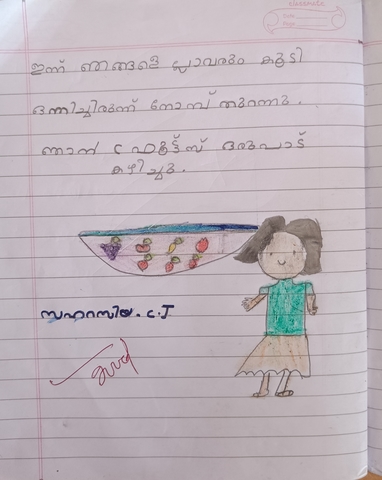 classmate
Date
Page
ഇന്ന് ഞങ്ങളെ ല്ലാവരും കൂടി
ഒന്നിച്ചിരുന്ന് നോമ്പ് തുറന്നു.
ഞാൻ ഫ്രൂട്ട്സ് ഒരുപാട്
കഴിച്ചു.
സഹറസിയ. C.J